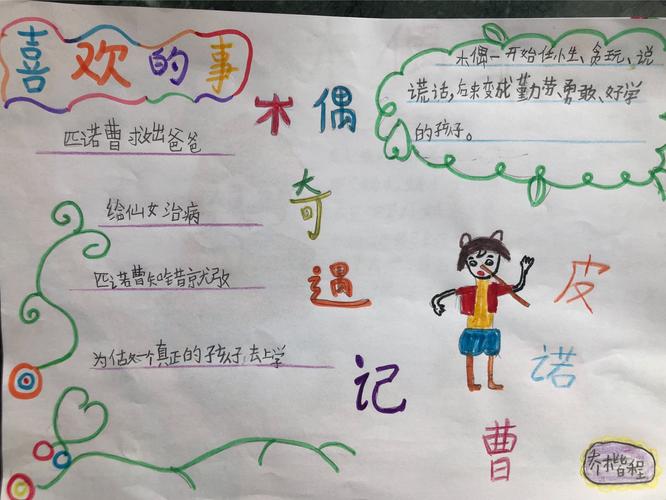 喜欢的事
匹诺曹救出爸爸
给仙女治病
匹诺曹知错就改
为做一个真正的孩子,去上学
木偶奇遇记
木偶一开始任小生、贪玩、说
谎话,后来变成勤力劳、勇敢、好学
的孩子。
皮诺曹
乔楷程